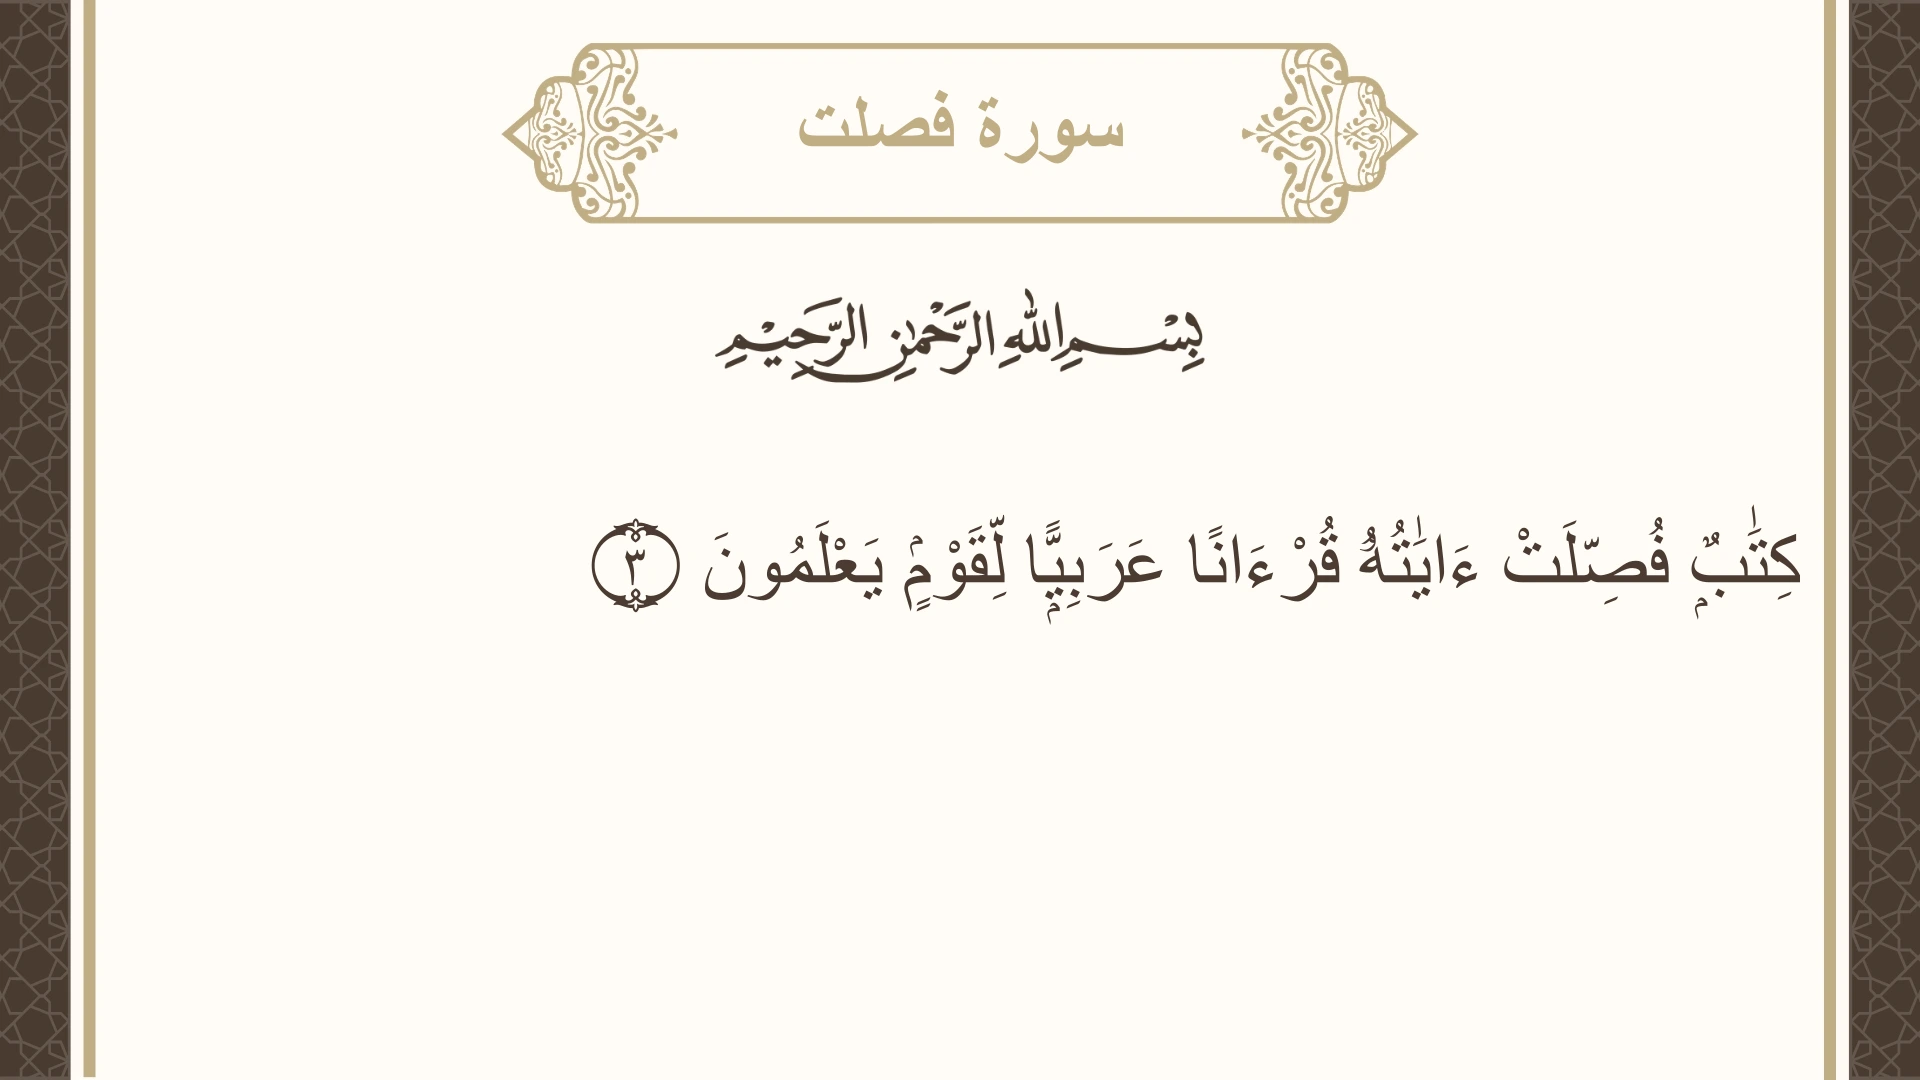 سورة فصلت
بِسْمِ اللهِ الرَّحْمٰنِ الرَّحِيْمِ
كِتَٰبٌۭ فُصِّلَتْ ءَايَٰتُهُۥ قُرْءَانًا عَرَبِيًّۭا لِّقَوْمٍۢ يَعْلَمُونَ ٣